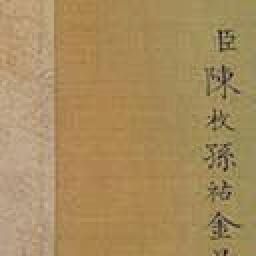 臣陳枚孫祜金